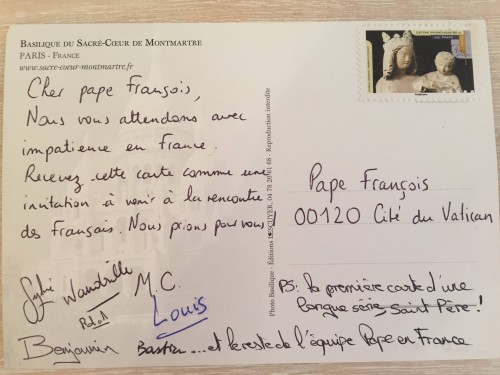 BASILIQUE DU SACRÉ-CŒUR DE MONTMARTRE
PARIS - FRANCE
www.sacre-coeur-montmartre.fr
Cher pape François,
Nous vous attendons avec
impatience en France.
Recevez cette carte comme une
invitation à venir à la rencontre
des Français. Nous prions pour vous!
Wandrille
M.C.
Louis
Benjamin
Bastien ...et le reste de l'équipe Pape en France
Photo Basilique - Éditions LESCUYER, 04 78 20 41 68 - Reproduction interdite
Pape François
00120 Cité du Vatican
PS: la première carte d'une
longue série, Saint Père!